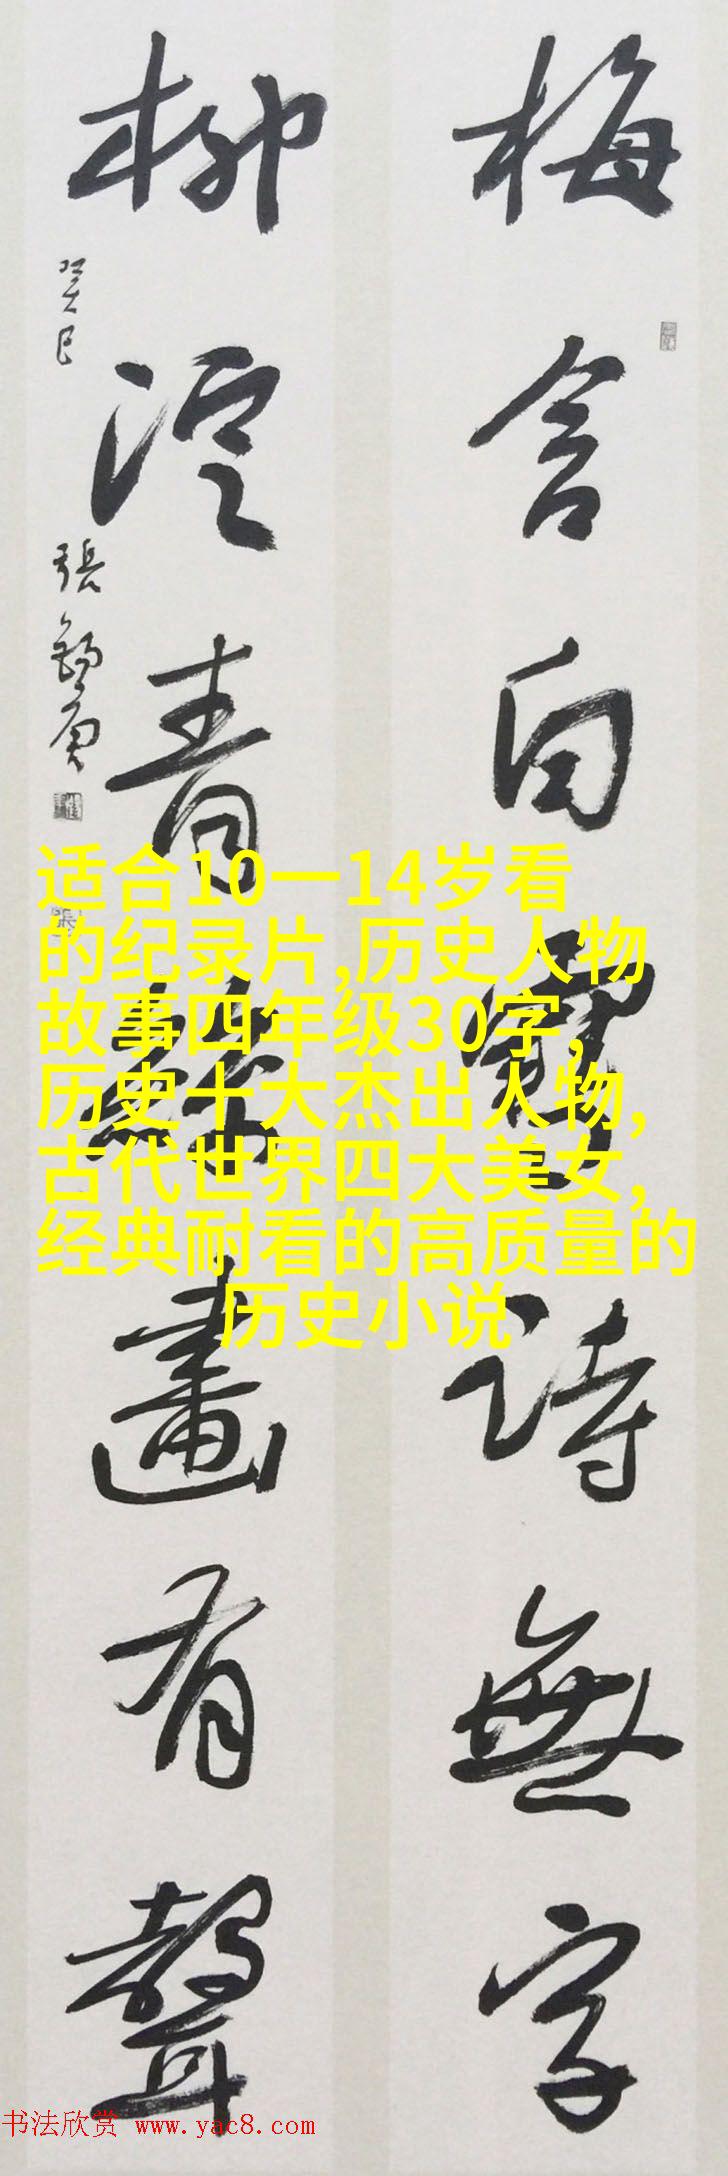 梅含白詩無字
柳青畫有聲
癸巳
張
适合10一14岁看
的纪录片,历史人物
故事四年级30字,
历史十大杰出人物,
古代世界四大美女,
经典耐看的高质量的
历史小说
书法欣赏 www.yac8.com